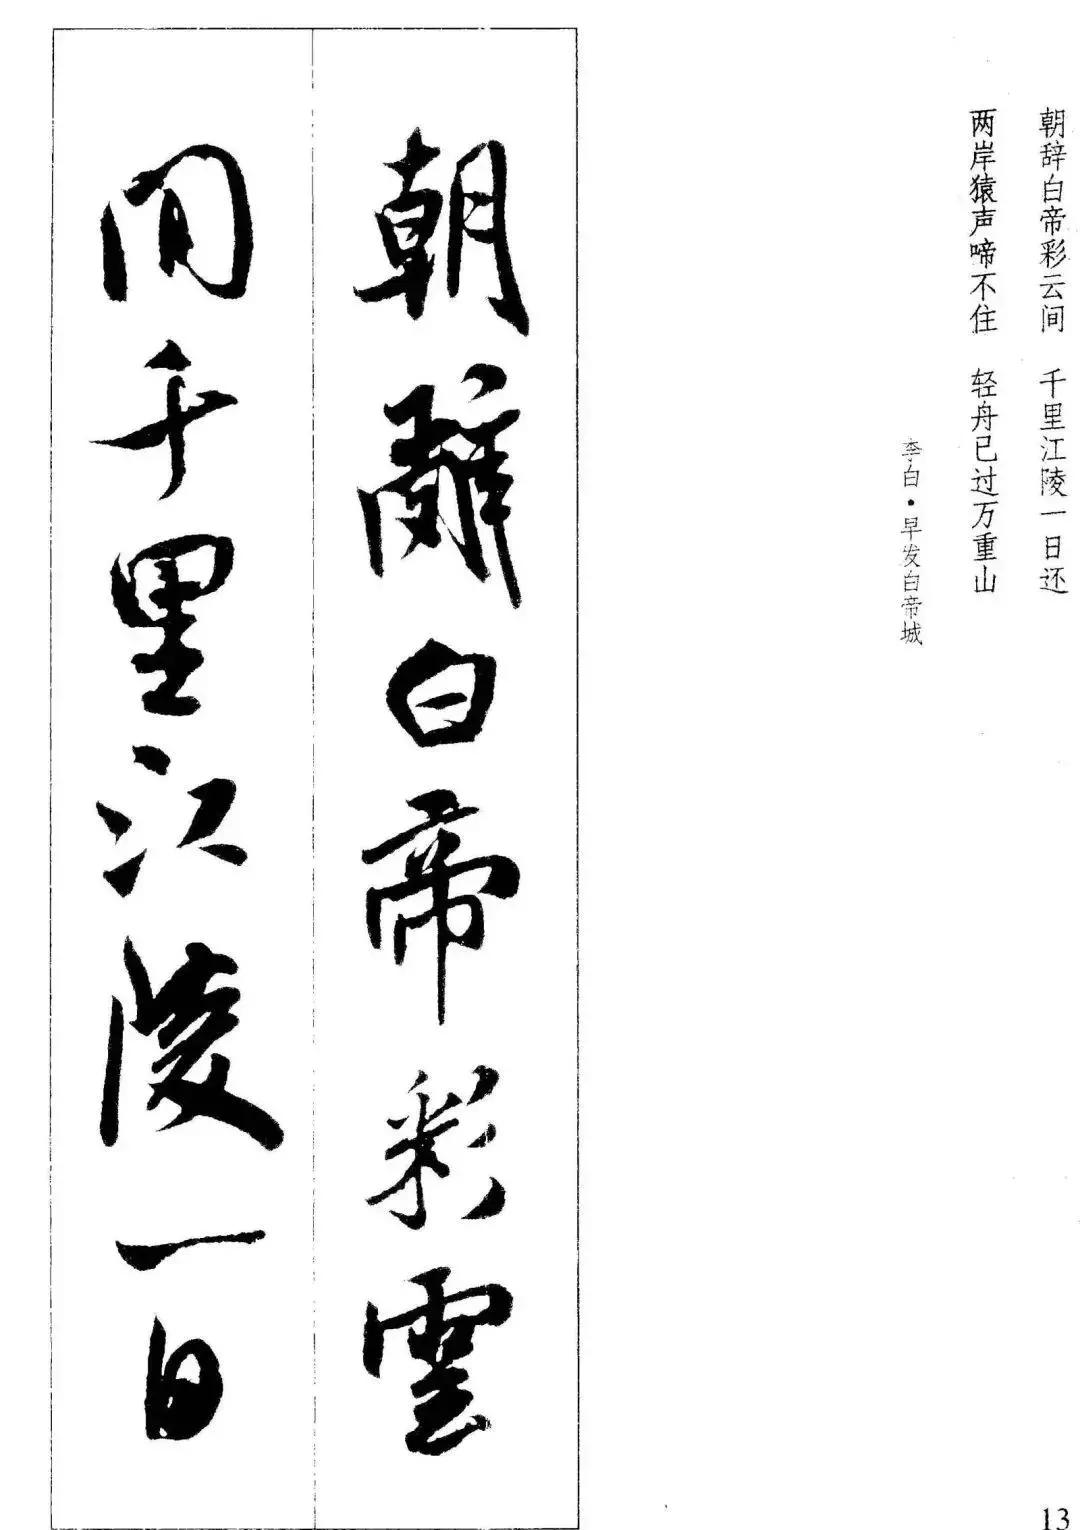 朝辞白帝彩云间 千里江陵一日还
两岸猿声啼不住 轻舟已过万重山
李白·早发白帝城
朝辭白帝彩雲
间千里江陵一日
13